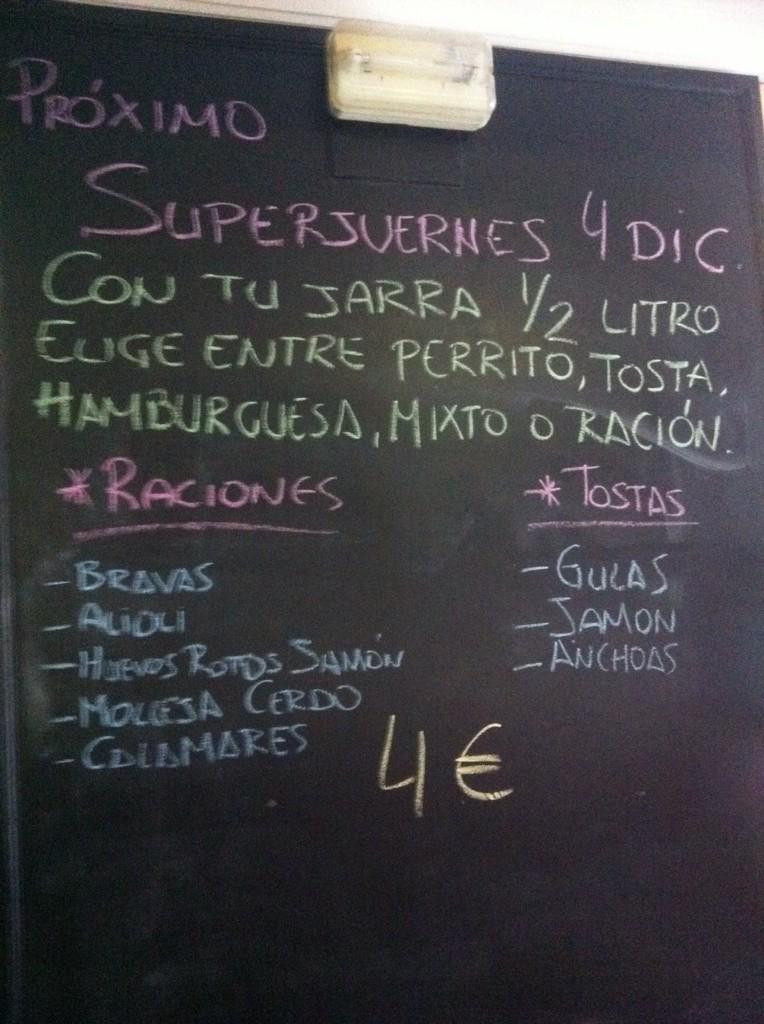 PRÓXIMO
SUPERJUERNES 4 DIC
CON TU JARRA 1/2 LITRO
ELIGE ENTRE PERRITO, TOSTA,
HAMBURGUESA, MIXTO O RACIÓN.
* RACIONES
- BRAVAS
- ALIOLI
- HUEVOS ROTOS JAMÓN
- MOLLEJA CERDO
- CALAMARES
* TOSTAS
- GULAS
- JAMON
- ANCHOAS
4 €